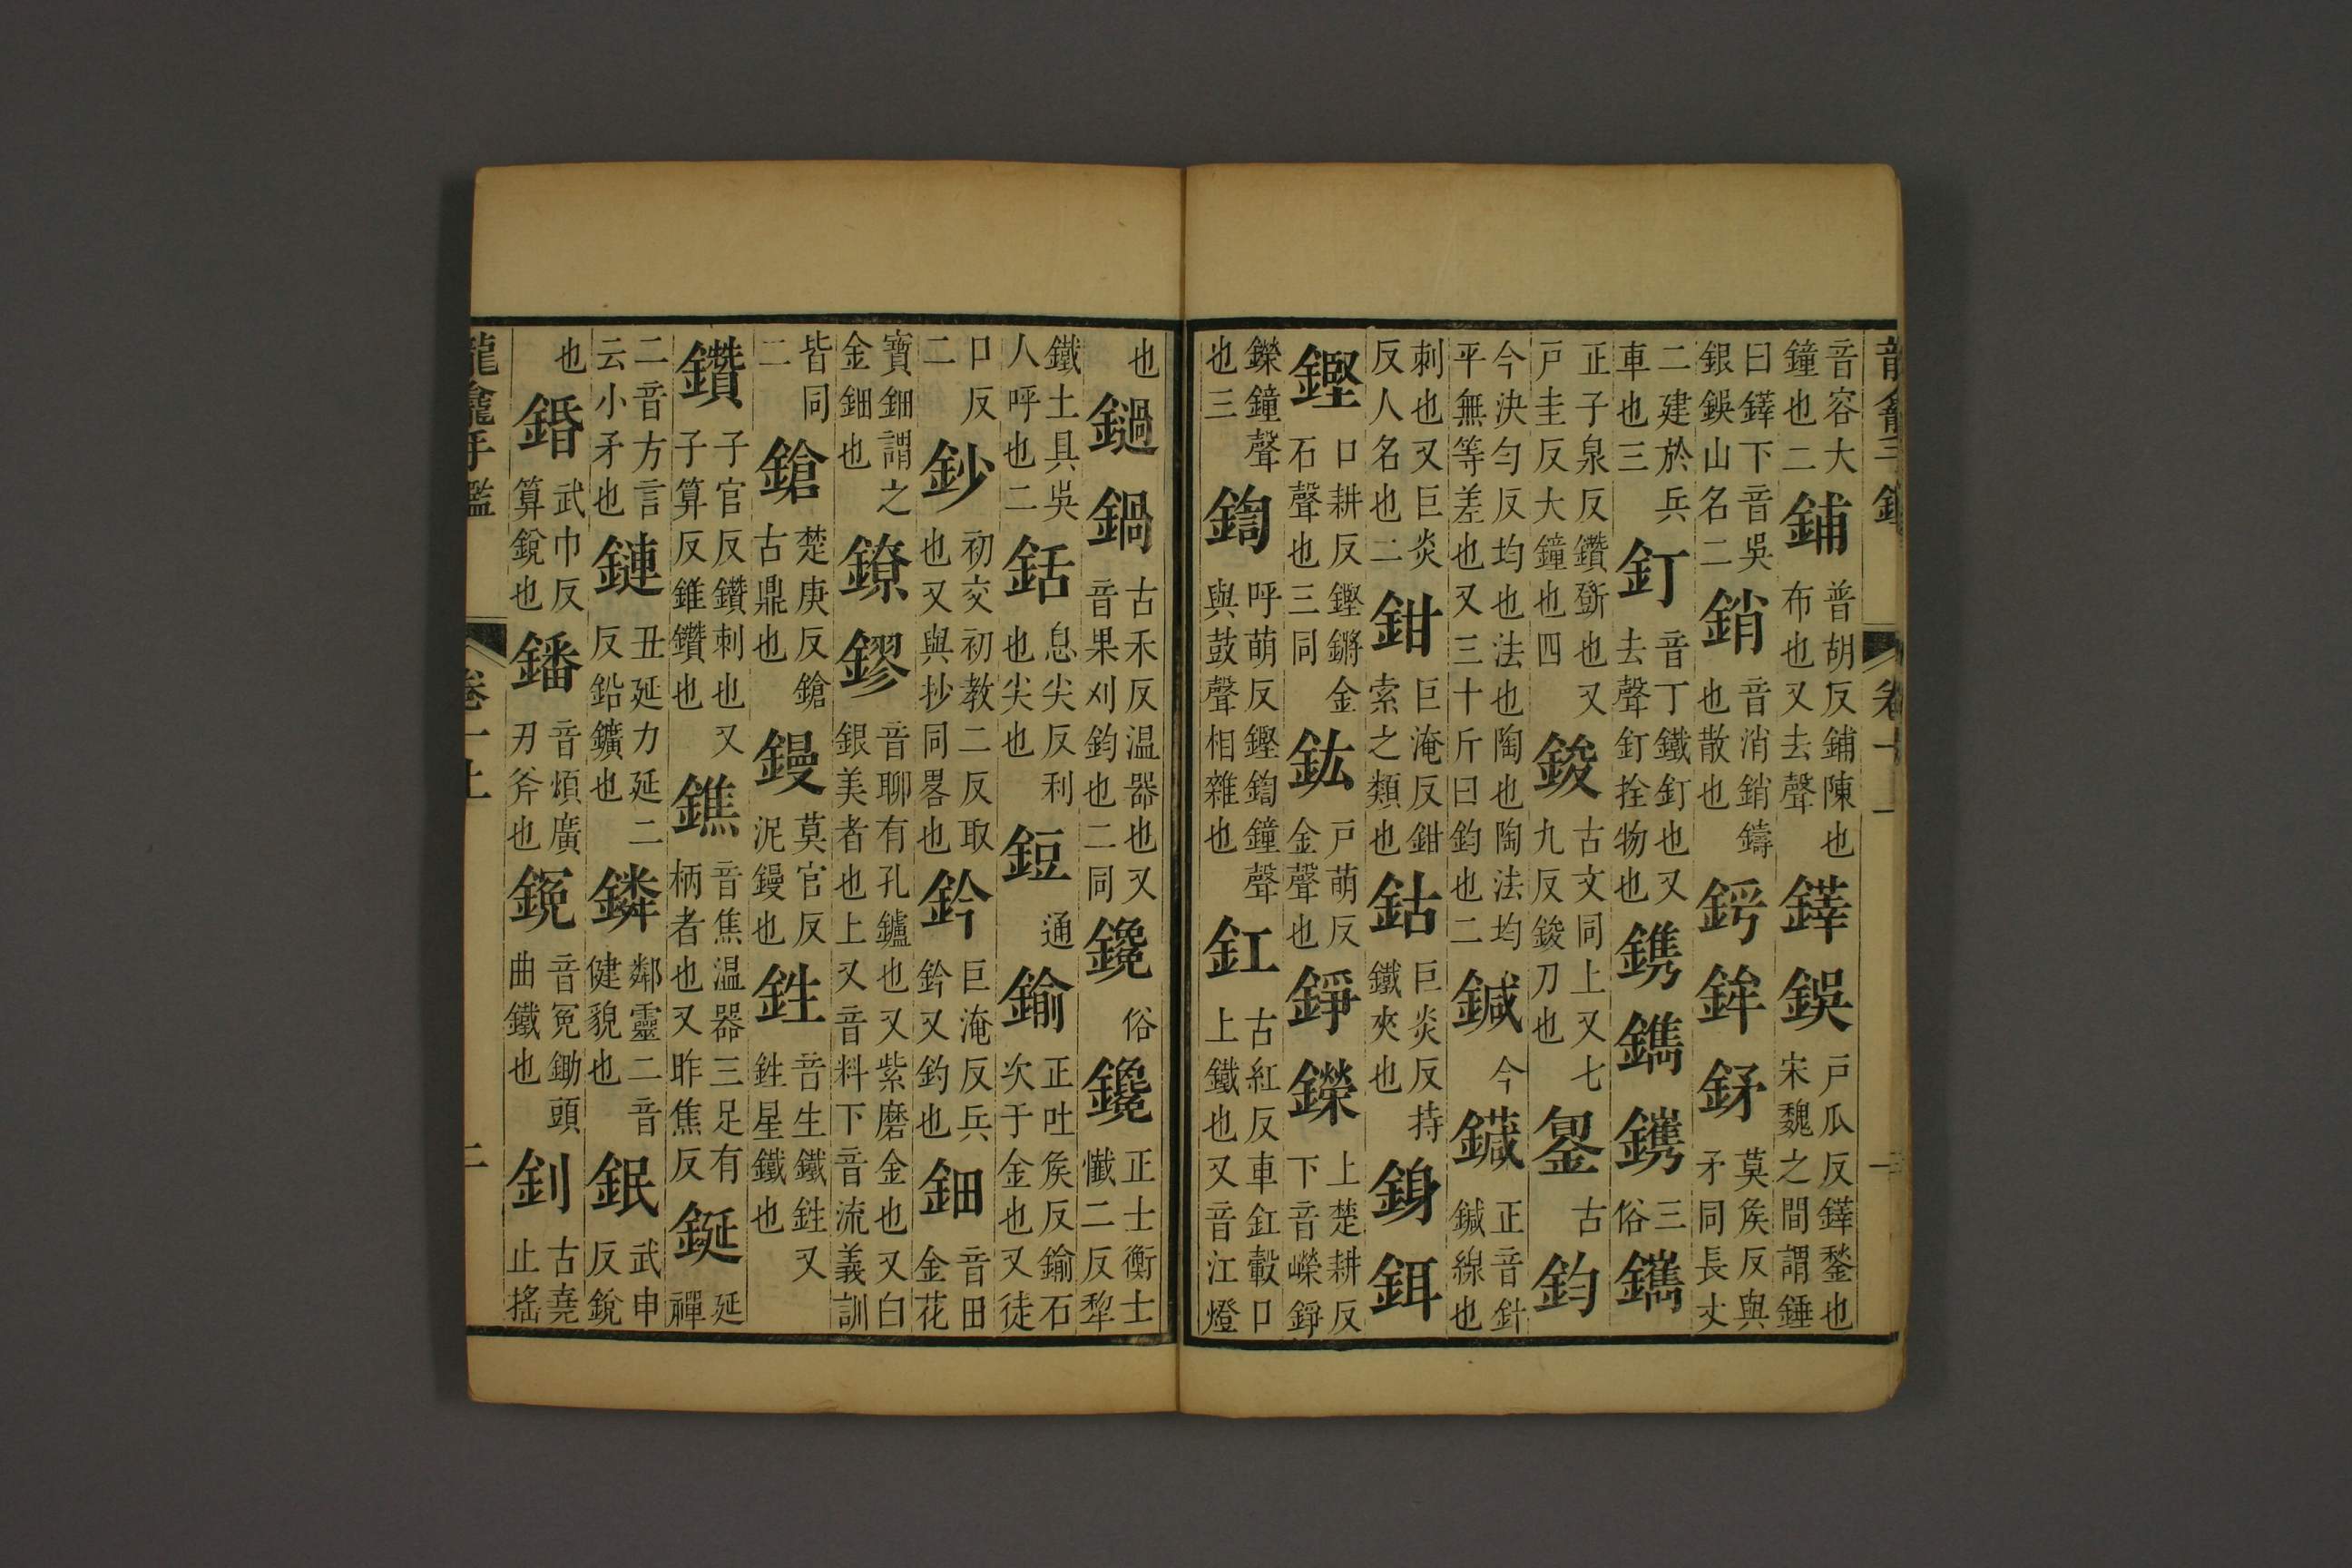 音容大鐘也二鋪普胡反鋪陳也布也又去聲鏵鋘戶瓜反鏵鍫也宋魏之間謂錘
曰鏵下音吳銀鋘山名二銷音消銷鑄也散也鍔鉾鉹莫矦反與矛同長丈
二建於兵車也三釘音丁鐵釘也又去聲釘拴物也鎸鐫鑴三俗鐫
正子泉反鑽斲也又戶圭反大鐘也四鋑古文同上又七九反鋑刀也銎古鈞
今決勻反均也法也陶也陶法均平無等差也又三十斤曰鈞也二鍼今鐬正音針鍼線也
刺也又巨炎反人名也二鉗巨淹反鉗索之類也鈷巨炎反持鐵夾也䤼鉺
鏗口耕反鏗鏘金石聲也三同鈜戶萌反金聲也錚鑅上楚耕反下音嶸錚
鑅鐘聲也三鍧呼萌反鏗鍧鐘聲與鼓聲相雜也釭古紅反車釭轂口上鐵也又音江燈
也鐹鍋古禾反温器也又音果刈鈎也二同鑱俗鑱正士衡士懺二反犂
鐵土具吳人呼也二銛息尖反利也尖也鋀通鍮正吐矦反鍮石次于金也又徒
口反二鈔初交初教二反取也又與抄同畧也鈐巨淹反兵鈐又釣也鈿音田金花
寶鈿謂之金鈿也鐐鏐音聊有孔鑪也又紫磨金也又白銀美者也上又音料下音流義訓
皆同二鎗楚庚反鎗古鼎也鏝莫官反泥鏝也鉎音生鐵鉎又鉎星鐵也
鑽子官反鑽刺也又子算反錐鑽也鐎音焦温器三足有柄者也又昨焦反鋋延禪
二音方言云小矛也鏈丑延力延二反鉛鑛也鏻鄰靈二音健貌也鈱武申反銳
也錉武巾反算銳也鐇音煩廣刃斧也鋺音冤鋤頭曲鐵也釗古堯止搖
龍龕手鑑 卷一上 二